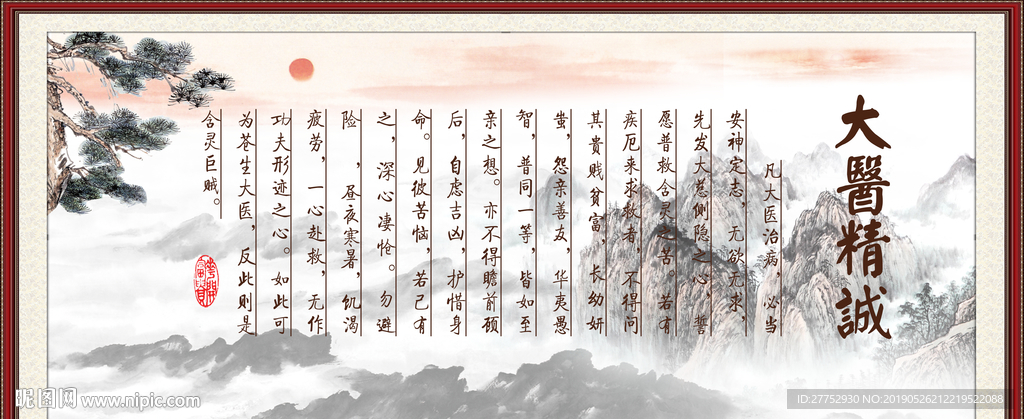 大醫精誠
凡大医治病，必当
安神定志，无欲无求，
先发大慈恻隐之心，誓
愿普救含灵之苦。若有
疾厄来求救者，不得问
其贵贱贫富，长幼妍
蚩，怨亲善友，华夷愚
智，普同一等，皆如至
亲之想。亦不得瞻前顾
后，自虑吉凶，护惜身
命。见彼苦恼，若己有
之，深心凄怆。勿避
险，昼夜寒暑，饥渴
疲劳，一心赴救，无作
功夫形迹之心。如此可
为苍生大医，反此则是
含灵巨贼。
昵图网 www.nipic.com
ID:27752930 NO:20190526212219522088